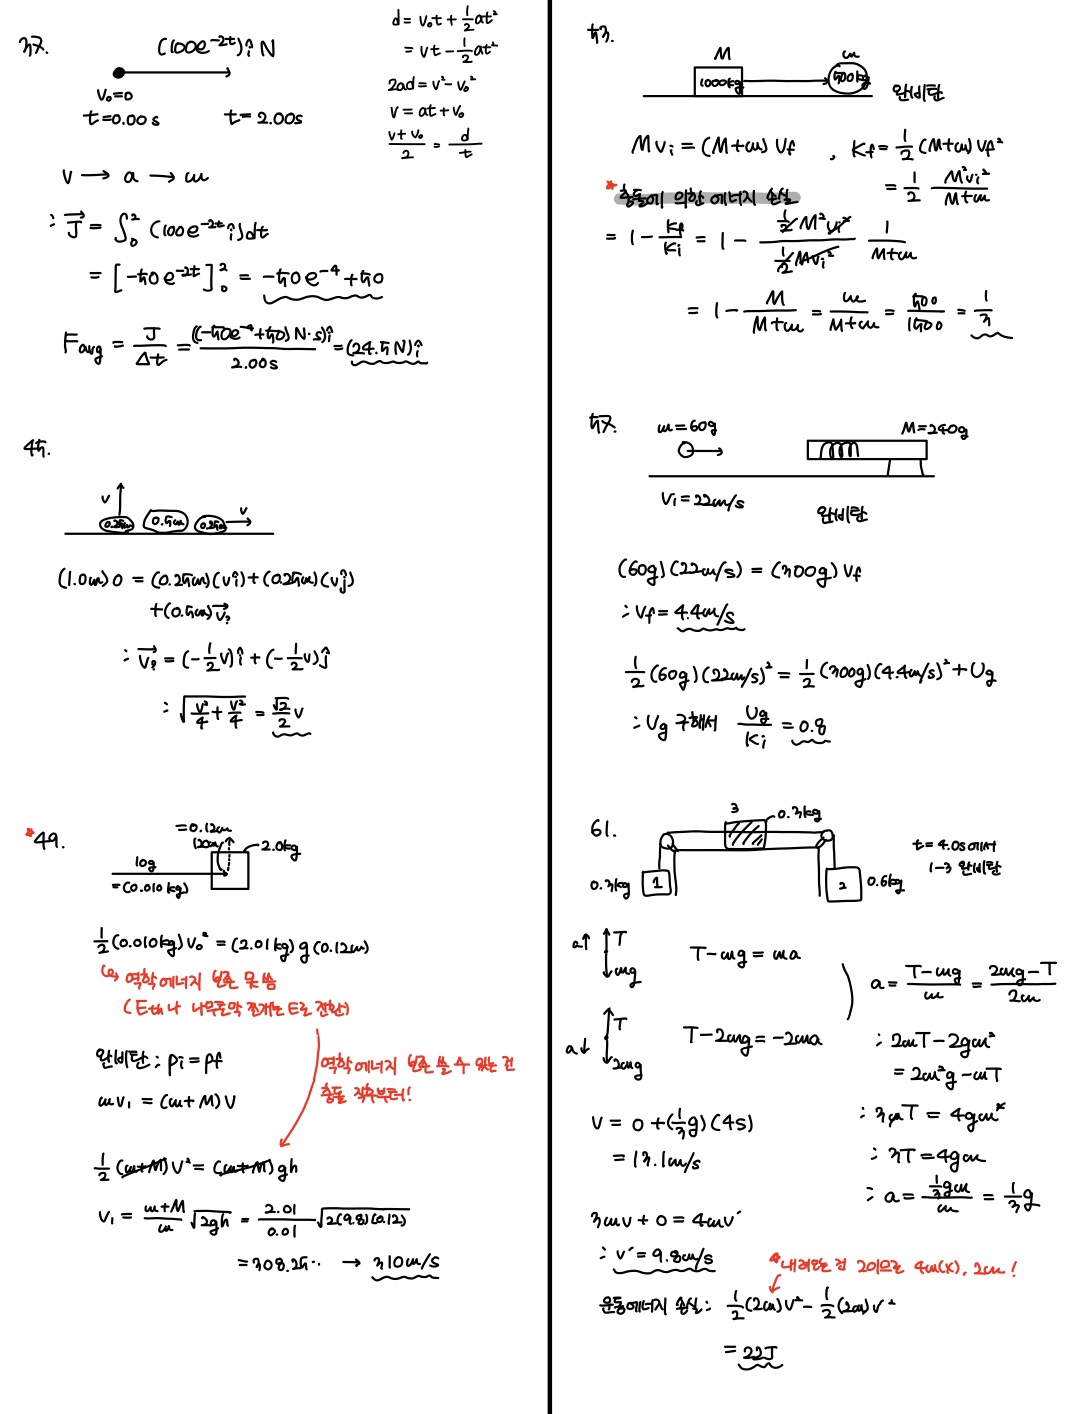 37.
(100e^{-2t})î N
v₀=0
t=0.00 s
t=2.00s
d = v₀t + 1/2 at²
= vt - 1/2 at²
2ad = v² - v₀²
v = at + v₀
(v+v₀)/2 = d/t
v → a → m
∴ J⃗ = ∫₀² (100e^{-2t}î)dt
= [-50e^{-2t}]₀² = -50e^{-4}+50
Favg = J/Δt = ((-50e^{-4}+50)N·s)î/2.00s = (24.5N)î
45.
v
0.25m
0.5m
0.25m
v
(1.0m)0 = (0.25m)(vî)+(0.25m)(vĵ)
+(0.5m)v⃗?
∴ v⃗? = (-1/2 v)î + (-1/2 v)ĵ
∴ √(v²/4 + v²/4) = √2/2 v
*49.
=0.12m
12cm
2.0kg
10g
=(0.010kg)
1/2 (0.010kg)v₀² = (2.01kg)g(0.12m)
↳ 역학에너지 보존 못 씀
(Eth나 나무토막 쪼개는 E로 전환)
완비탄: pi = pf
mv₁ = (m+M)V
역학에너지 보존 쓸 수 있는 건
충돌 직후부터!
1/2 (m+M)V² = (m+M)gh
v₁ = (m+M)/m √2gh = 2.01/0.01 √2(9.8)(0.12)
= 308.25·· → 310m/s
53.
M
1000kg
m
500kg
완비탄
Mvi = (M+m)Vf , Kf = 1/2 (M+m)Vf²
= 1/2 M²vi²/(M+m)
* 충돌에 의한 에너지 손실
= 1 - Kf/Ki = 1 - (1/2 M²vi²)/(1/2 Mvi²) 1/(M+m)
= 1 - M/(M+m) = m/(M+m) = 500/1500 = 1/3
57.
m=60g
M=240g
vi=22m/s
완비탄
(60g)(22m/s) = (300g)Vf
∴ Vf = 4.4m/s
1/2 (60g)(22m/s)² = 1/2 (300g)(4.4m/s)² + Ug
∴ Ug 구해서 Ug/Ki = 0.8
61.
3
0.3kg
0.3kg
1
2
0.6kg
t=4.0s에서
1-3 완비탄
a↑
T
mg
T-mg = ma
a↓
T
2mg
T-2mg = -2ma
a = (T-mg)/m = (2mg-T)/2m
∴ 2mT-2gm²
= 2m²g-mT
∴ 3mT = 4gm²
∴ 3T = 4gm
∴ a = (1/3 gm)/m = 1/3 g
v = 0+(1/3 g)(4s)
= 13.1m/s
3mv+0 = 4mv′
∴ v′ = 9.8m/s
* 내려오는 건 2이므로 4m(X), 2m!
운동에너지 손실: 1/2 (2m)v² - 1/2 (2m)v′²
= 22J